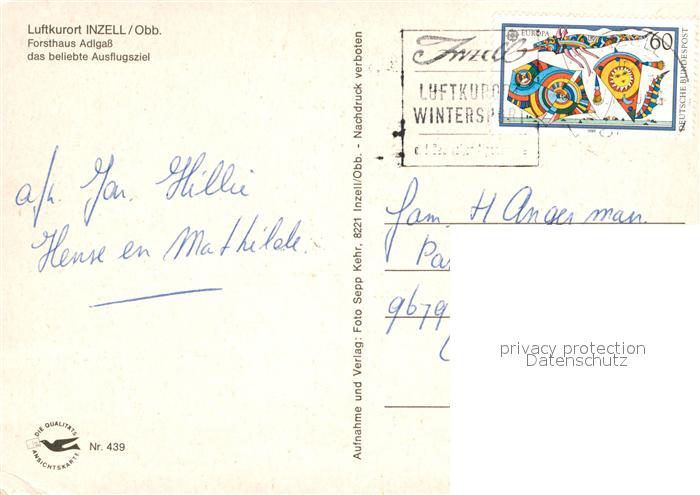 Luftkurort INZELL/Obb.
Forsthaus Adlgaß
das beliebte Ausflugsziel
Inzell
LUFTKURO
WINTERSP
EUROPA
60
DEUTSCHE BUNDESPOST
afz. Jan. Hillie
Hense en Mathilde.
Aufnahme und Verlag: Foto Sepp Kehr, 8221 Inzell/Obb. - Nachdruck verboten
fam. H Angerman.
Pa
9679
privacy protection
Datenschutz
DIE QUALITÄTS
ANSICHTSKARTE
Nr. 439